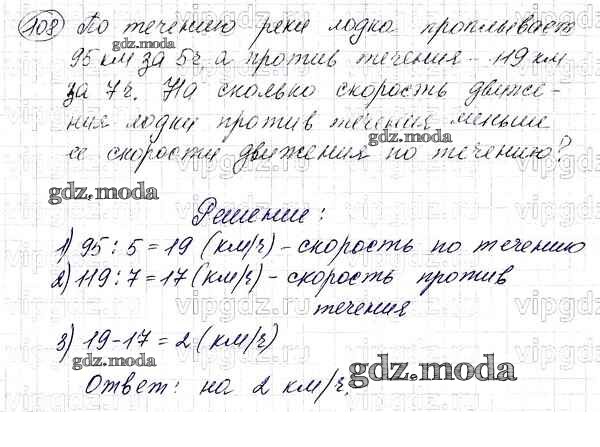 108 По течению реки лодка проплывает
95 км за 5ч, а против течения - 119 км
за 7ч. На сколько скорость движе-
ния лодки против течения меньше
ее скорости движения по течению?
Решение:
1) 95 : 5 = 19 (км/ч) - скорость по течению
2) 119 : 7 = 17 (км/ч) - скорость против
течения
3) 19 - 17 = 2 (км/ч)
Ответ: на 2 км/ч.
gdz.moda
gdz.moda
gdz.moda
gdz.moda
gdz.moda
gdz.moda
vipgdz.ru